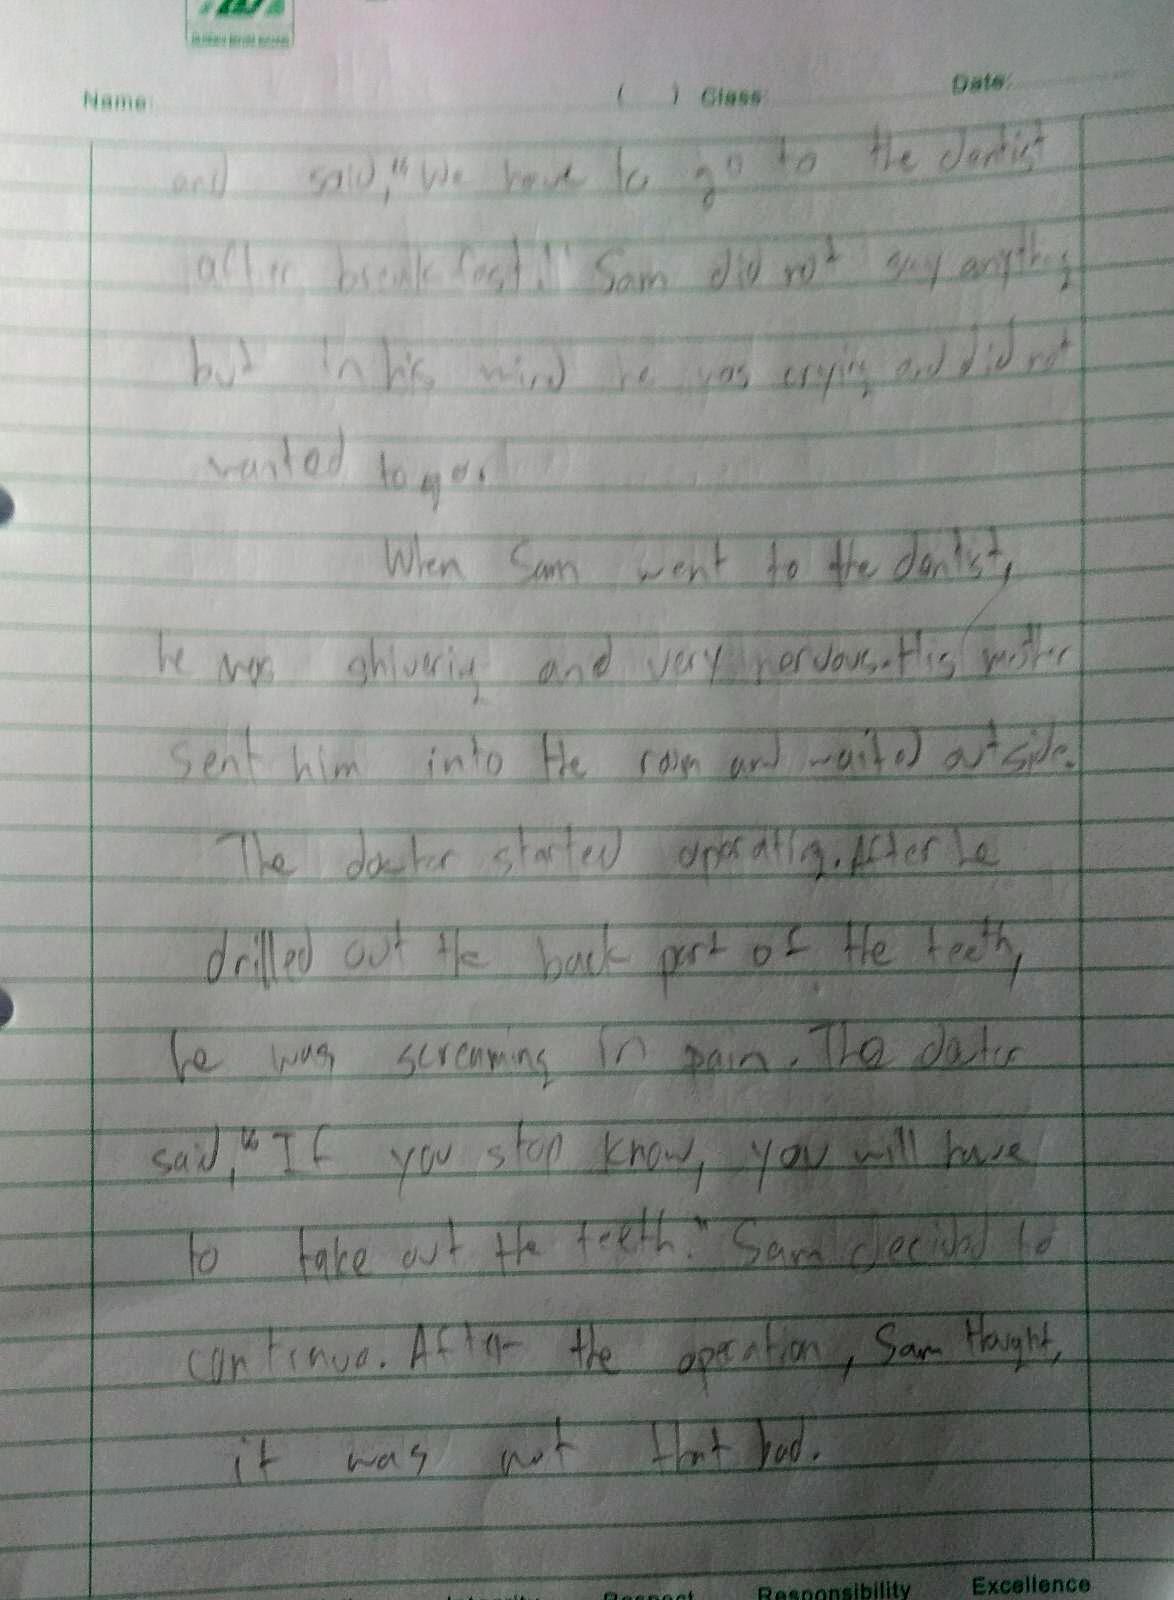 Name: ( ) Class: Date:
and said," We have to go to the dentist
after breakfast." Sam did not say anything
but in his mind he was crying and did not
wanted to go.
When Sam went to the dentist,
he was shivering and very nervous. His mother
sent him into the room and waited outside.
The doctor started operating. After he
drilled out the back part of the teeth,
he was screaming in pain. The doctor
said," If you stop know, you will have
to take out the teeth." Sam decided to
continue. After the operation, Sam thought,
it was not that bad.
Respect Responsibility Excellence